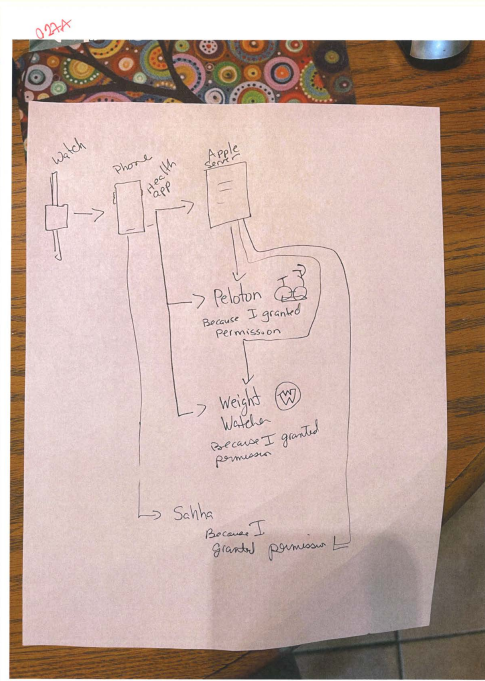 027A
Watch
Phone
Health
app
Apple
Server
Peloton
Because I granted
permission
Weight
Watcher
W
Because I granted
permission
Sahha
Because I
granted permission